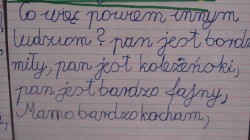 Co więc powiem innym
ludziom? pan jest bardz
miły, pan jest koleżeński,
pan jest bardzo fajny,
Mamo bardzo kocham,